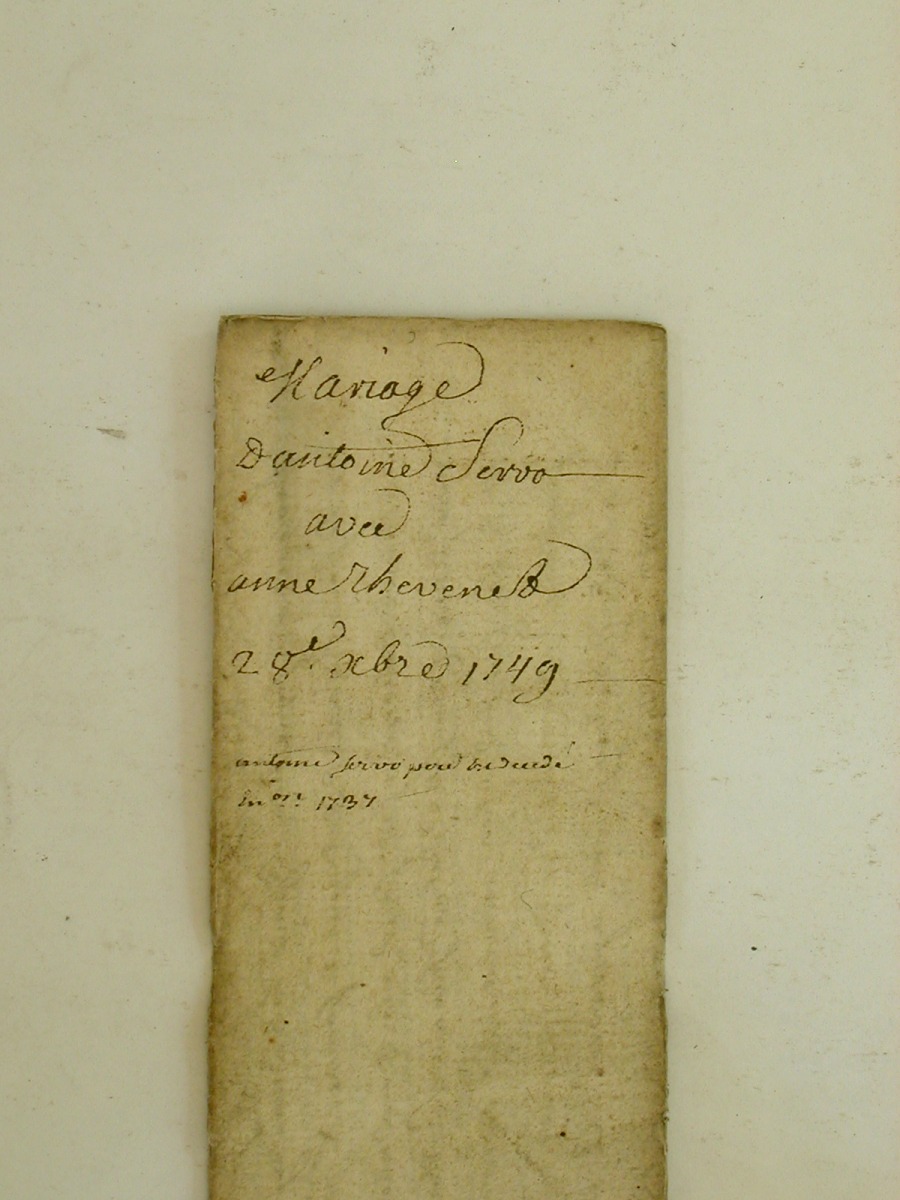 Mariage
d'antoine Servo
avec
anne Thevenet
28e xbre 1749
antoine servo pere est decedé
en 1737